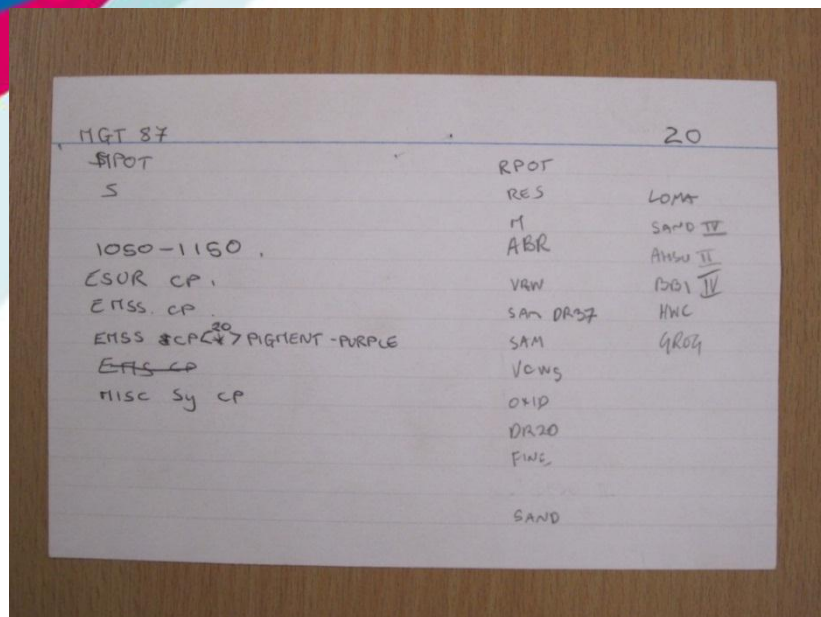 MGT 87
20
MPOT
S
1050-1150.
ESUR CP.
EMSS. CP.
EMSS CP <20> PIGMENT-PURPLE
EMS CP
MISC SY CP
RPOT
RES
M
ABR
VRW
SAM DR37
SAM
VCWS
OXID
DR20
FINE
SAND
LOMA
SAND IV
AHSU II
BB1 IV
HWC
GROG